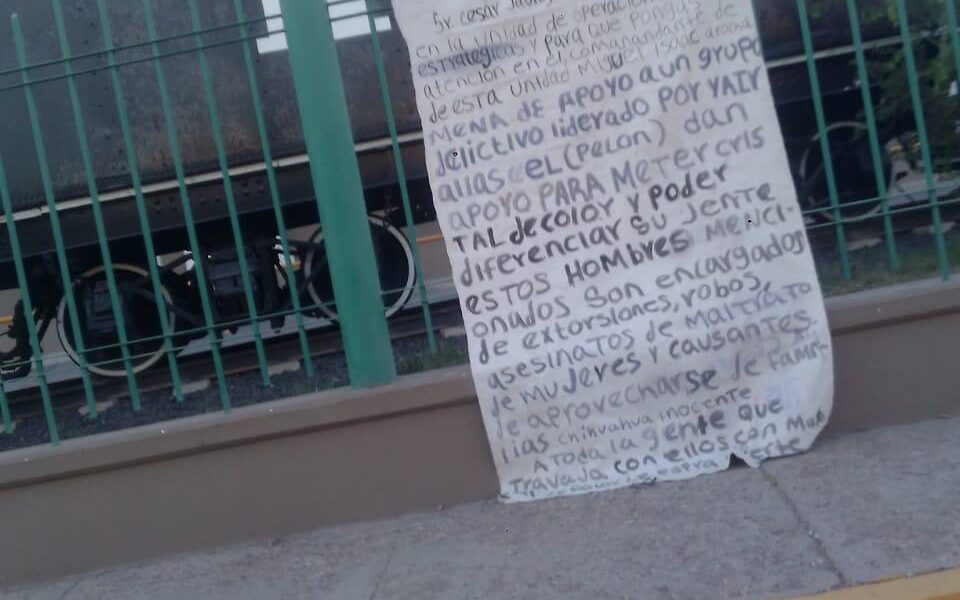 Sr cesar
en la unidad de operacion
estrategicas y para que pongas
atención en el comandante de
de esta unidad Miguel Isaac
MENA DE APOYO A UN GRUPO
delictivo liderado POR YAIR
alias el (pelon) dan
apoyo PARA METER CRIS
TAL de color y poder
diferenciar su jente
ESTOS HOMBRES MENCI-
onados son encargados
de extorsiones, robos,
asesinatos de MALTRATO
de mujeres y causantes
de aprovecharse de fami-
lias chihuahua inocente
A toda la gente que
travaja con ellos con